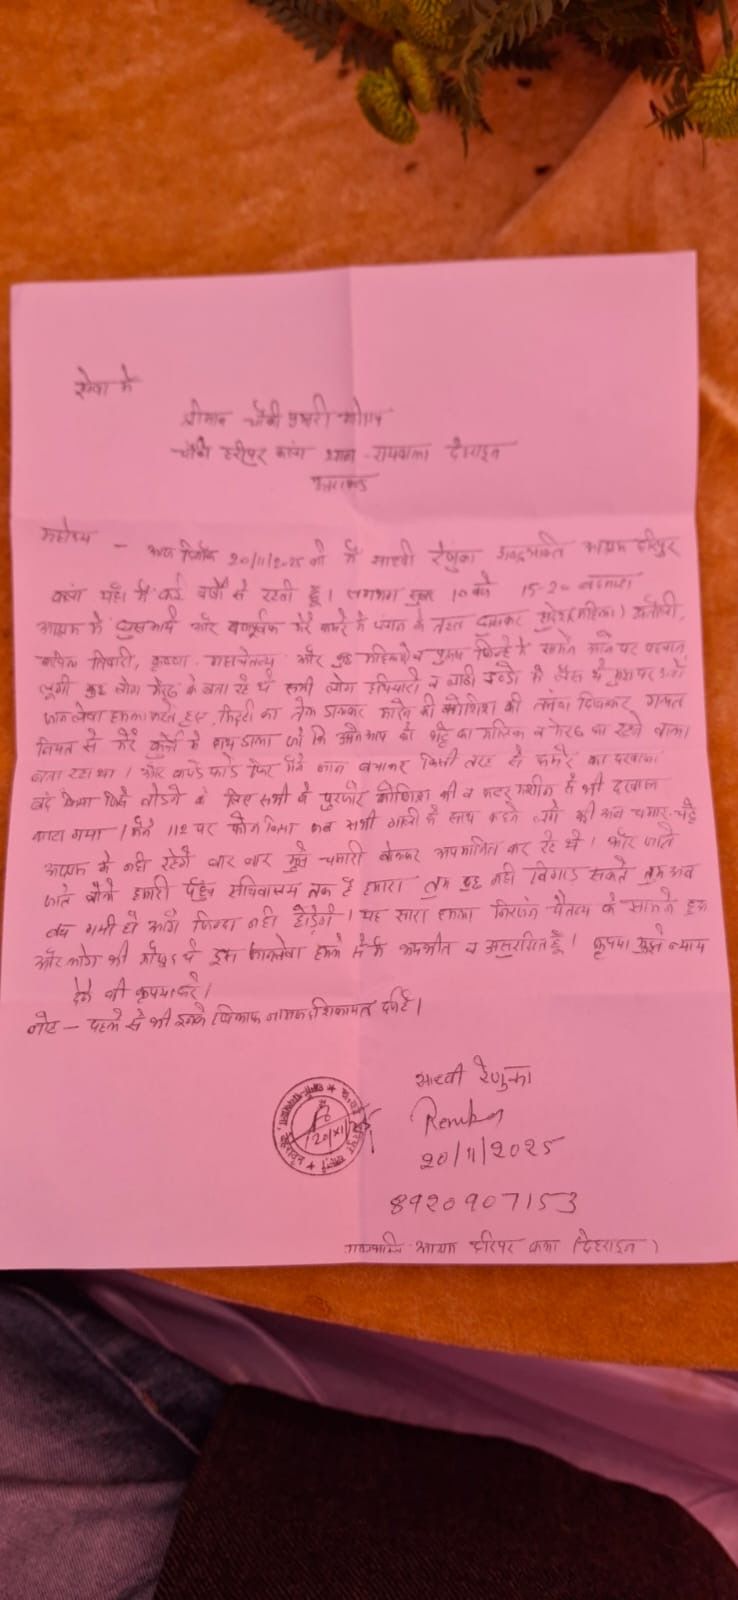 सेवा में
श्रीमान चौकी प्रभारी महोदय
चौकी हरीपुर कलां थाना - रायवाला देहरादून
उत्तराखंड
महोदय - आज दिनांक 20/11/2025 को मैं साध्वी रेणुका आश्रम हरिपुर
कलां यहाँ मैं कई वर्षों से रहती हूँ। लगभग सुबह 10 बजे 15-20 बदमाश
आश्रम में घुस आये और मेरे कमरे में के दबाकर (महिला)
तिवारी, कृष्णा और कुछ महिलायें व पुरुष जिन्हें मैं सामने आने पर पहचान
लूंगी कुछ लोग मेरठ के बता रहे थे सभी लोग हथियारों व लाठी डण्डों से लैस थे मुझ पर
जान लेवा हमला करते हुए मिट्टी का तेल डालकर मारने की कोशिश की तमंचा दिखाकर गलत
नियत से मेरे कुर्ते में हाथ डाला जो कि अपने आप को भट्टे का मालिक व मेरठ का रहने वाला
बता रहा था। और कपड़े फाड़े फिर मैंने जान बचाकर किसी तरह से कमरे का दरवाजा
बंद किया जिसे तोड़ने के लिए सभी ने पुरजोर कोशिश की व कटर मशीन से भी दरवाजा
काटा गया। मैंने 112 पर फोन किया तब सभी गाली के साथ कहने लगे की अब चमार
आश्रम में नहीं रहेंगे बार बार मुझे चमारी बोलकर अपमानित कर रहे थे। और जाते
जाते बोले हमारी पहुंच सचिवालय तक है हमारा तुम कुछ नहीं बिगाड़ सकते तुम अब
बच गयी हो आगे जिन्दा नहीं छोड़ेंगे। यह सारा हमला निरंजन चैतन्य के सामने हुआ
और लोग भी मौजूद थे इस जानलेवा हमले से मैं भयभीत व असुरक्षित हूँ। कृपया मुझे न्याय
देने की कृपया करें।
नोट - पहले से भी इनके खिलाफ नामजद शिकायत दर्ज है।
साध्वी रेणुका
Renuka
20/11/2025
8920907153
आश्रम हरिपुर कलां (देहरादून)